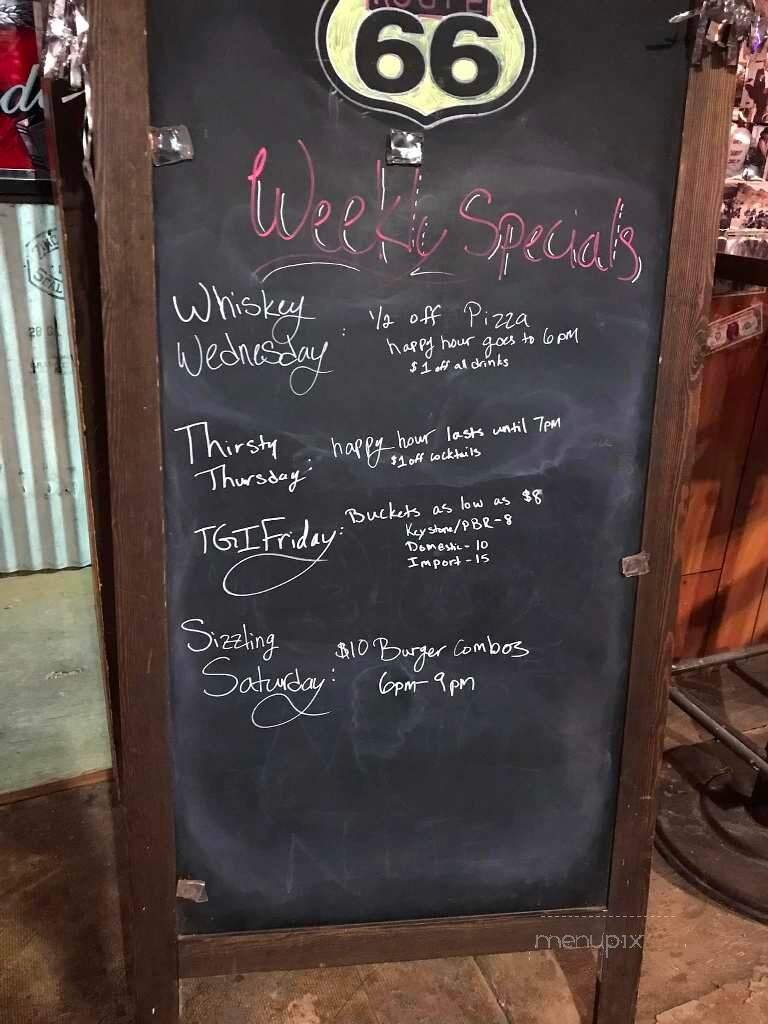 ROUTE
66
Weekly Specials
Whiskey
Wednesday : 1/2 off Pizza
happy hour goes to 6pm
$1 off all drinks
Thirsty
Thursday: happy hour lasts until 7pm
$1 off cocktails
TGIFriday: Buckets as low as $8
Keystone/PBR-8
Domestic-10
Import-15
Sizzling
Saturday: $10 Burger Combos
6pm-9pm
menupix